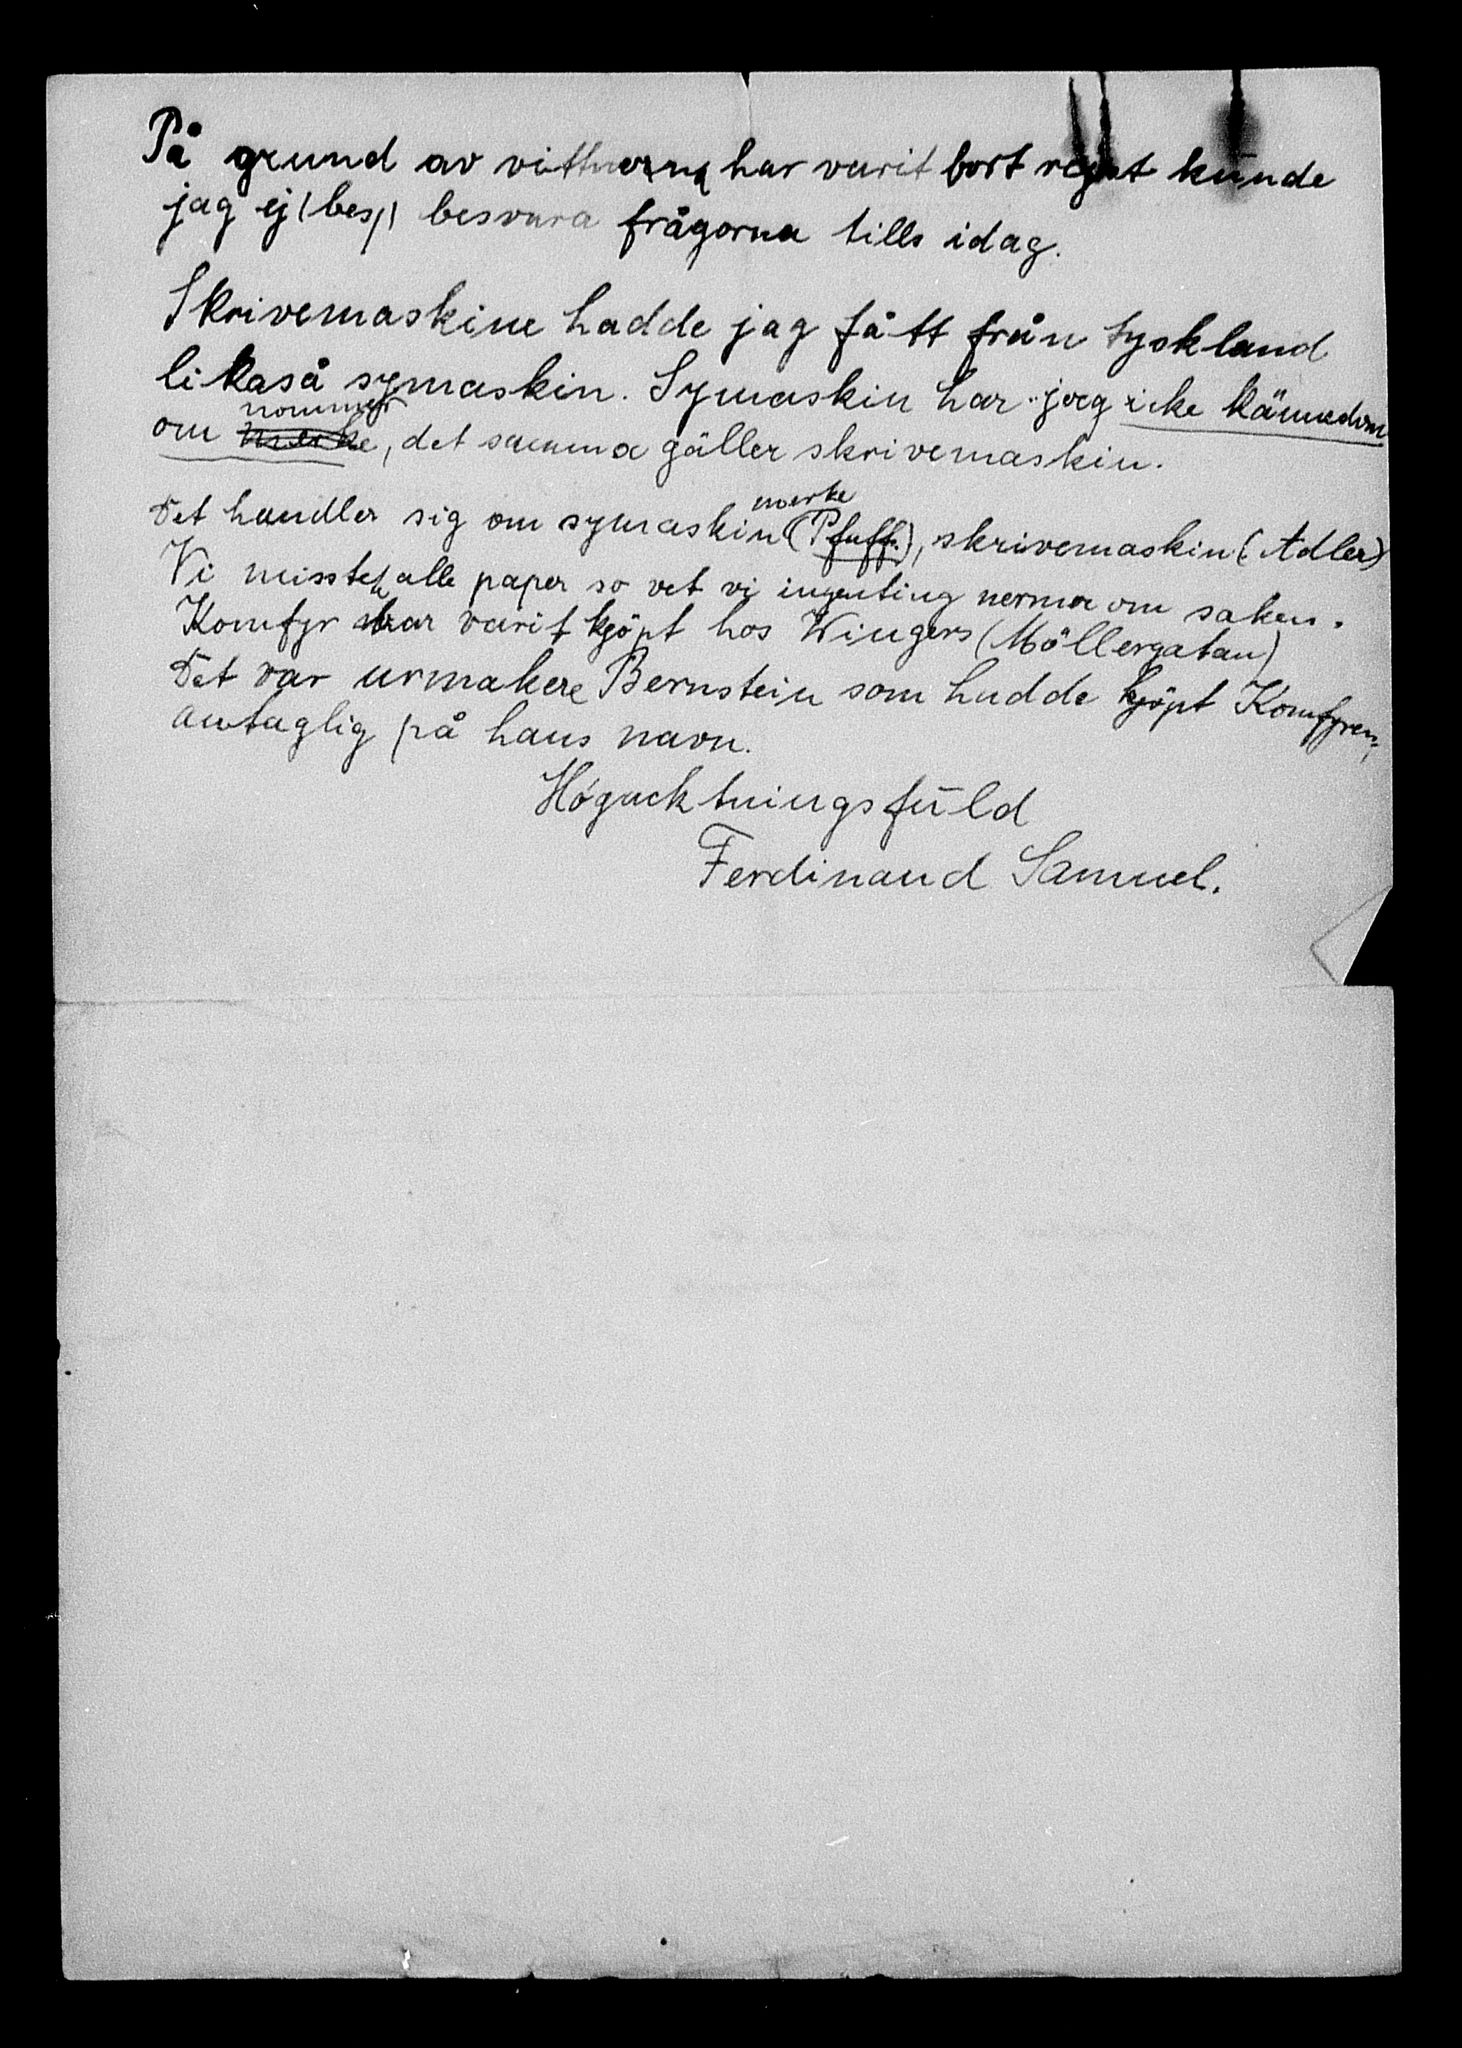 På grund av vittnerna har varit bort reist kunde
jag ej (bes,) besvara frågorna tills idag.
Skrivemaskine hadde jag fått från tyskland
likaså symaskin. Symaskin har jag icke kännedom
om nommer merke, det samma gäller skrivemaskin.
Det handler sig om symaskin merke (Pfaff.), skrivemaskin (Adler)
Vi misste alle paper so vet vi ingenting nerma om saken.
Komfyr har varit kjöpt hos Wingers (Möllergatan)
Det var urmakere Bernstein som hadde kjöpt Komfyren,
antaglig på hans navn.
Högacktningsfuld
Ferdinand Samuel.